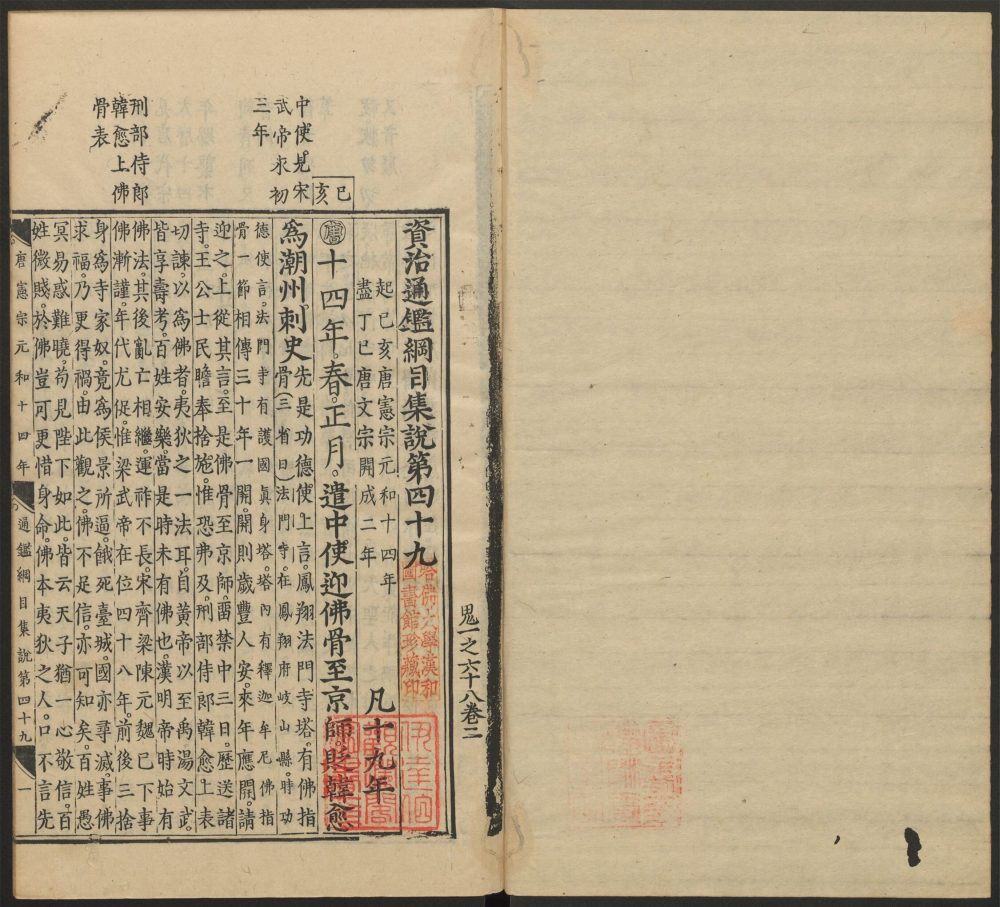 鬼一之六十八卷三
資治通鑑綱目集說第四十九
哈佛大學漢和
圖書館珍藏印
起己亥唐憲宗元和十四年
盡丁巳唐文宗開成二年
凡十九年
己亥
唐十四年。春。正月。遣中使迎佛骨至京師。貶韓愈
中使。見宋
武帝永初
三年
爲潮州刺史
先是功德使。上言。鳳翔法門寺塔。有佛指
骨(三省曰)法門寺。在鳳翔府岐山縣。時功
德使言。法門寺有護國眞身塔。塔內有釋迦牟尼佛指
骨一節相傳三十年一開。開則歲豐人安。來年應開。請
迎之。上從其言。至是佛骨至京師。畱禁中三日。歷送諸
寺。王公士民瞻奉捨施。惟恐弗及。刑部侍郎韓愈。上表
刑部侍郎
韓愈上佛
骨表
切諫。以爲佛者。夷狄之一法耳。自黃帝以至禹湯文武。
皆享壽考。百姓安樂。當是時未有佛也。漢明帝時始有
佛法。其後亂亡相繼。運祚不長。宋齊梁陳元魏已下。事
佛漸謹。年代尤促。惟梁武帝在位四十八年。前後三捨
身爲寺家奴。竟爲侯景所逼。餓死臺城。國亦尋滅。事佛
求福。乃更得禍。由此觀之。佛不足信。亦可知矣。百姓愚
冥。易惑難曉。苟見陛下如此。皆云天子猶一心敬信。百
姓微賤。於佛豈可更惜身命。佛本夷狄之人。口不言先
唐憲宗元和十四年
通鑑綱目集說第四十九
一